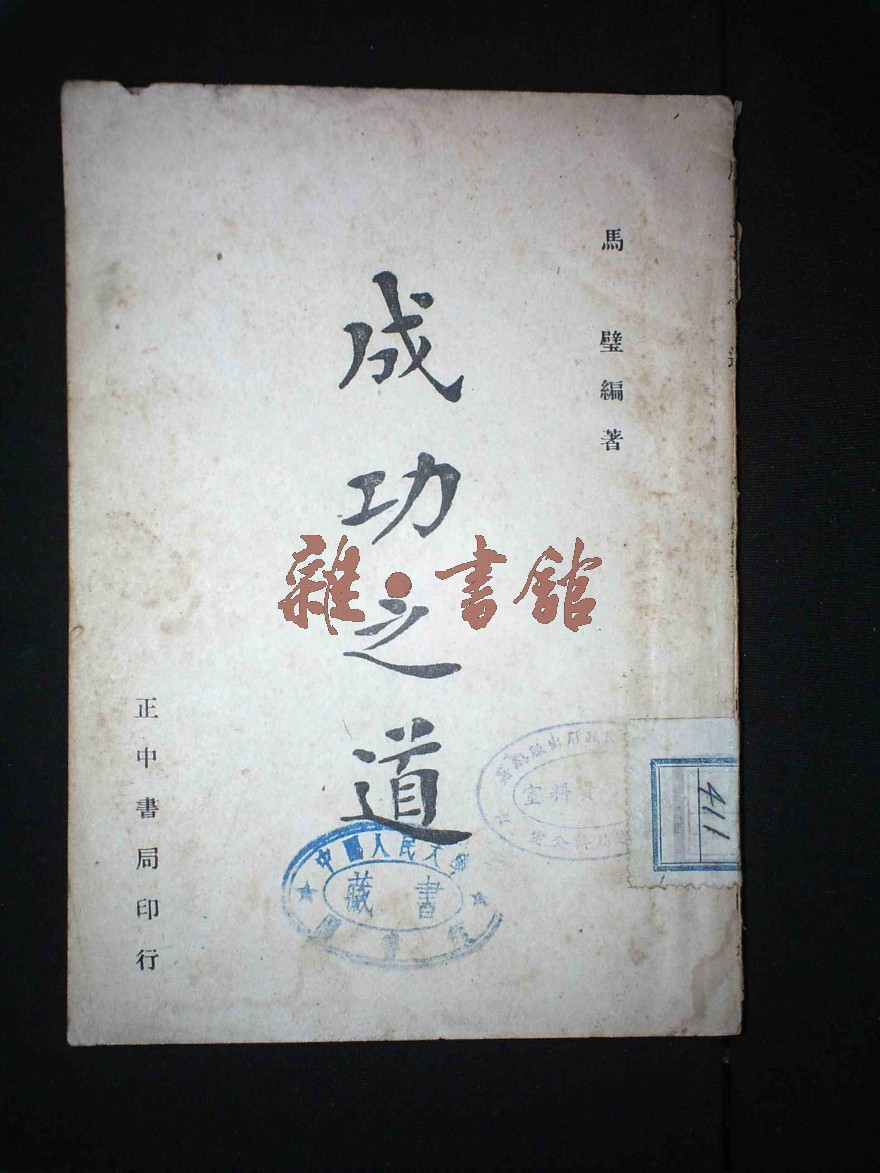 馬璧編著
成功之道
正中書局印行
雜·書館
中國人民大學
藏書
圖書館
料室
411